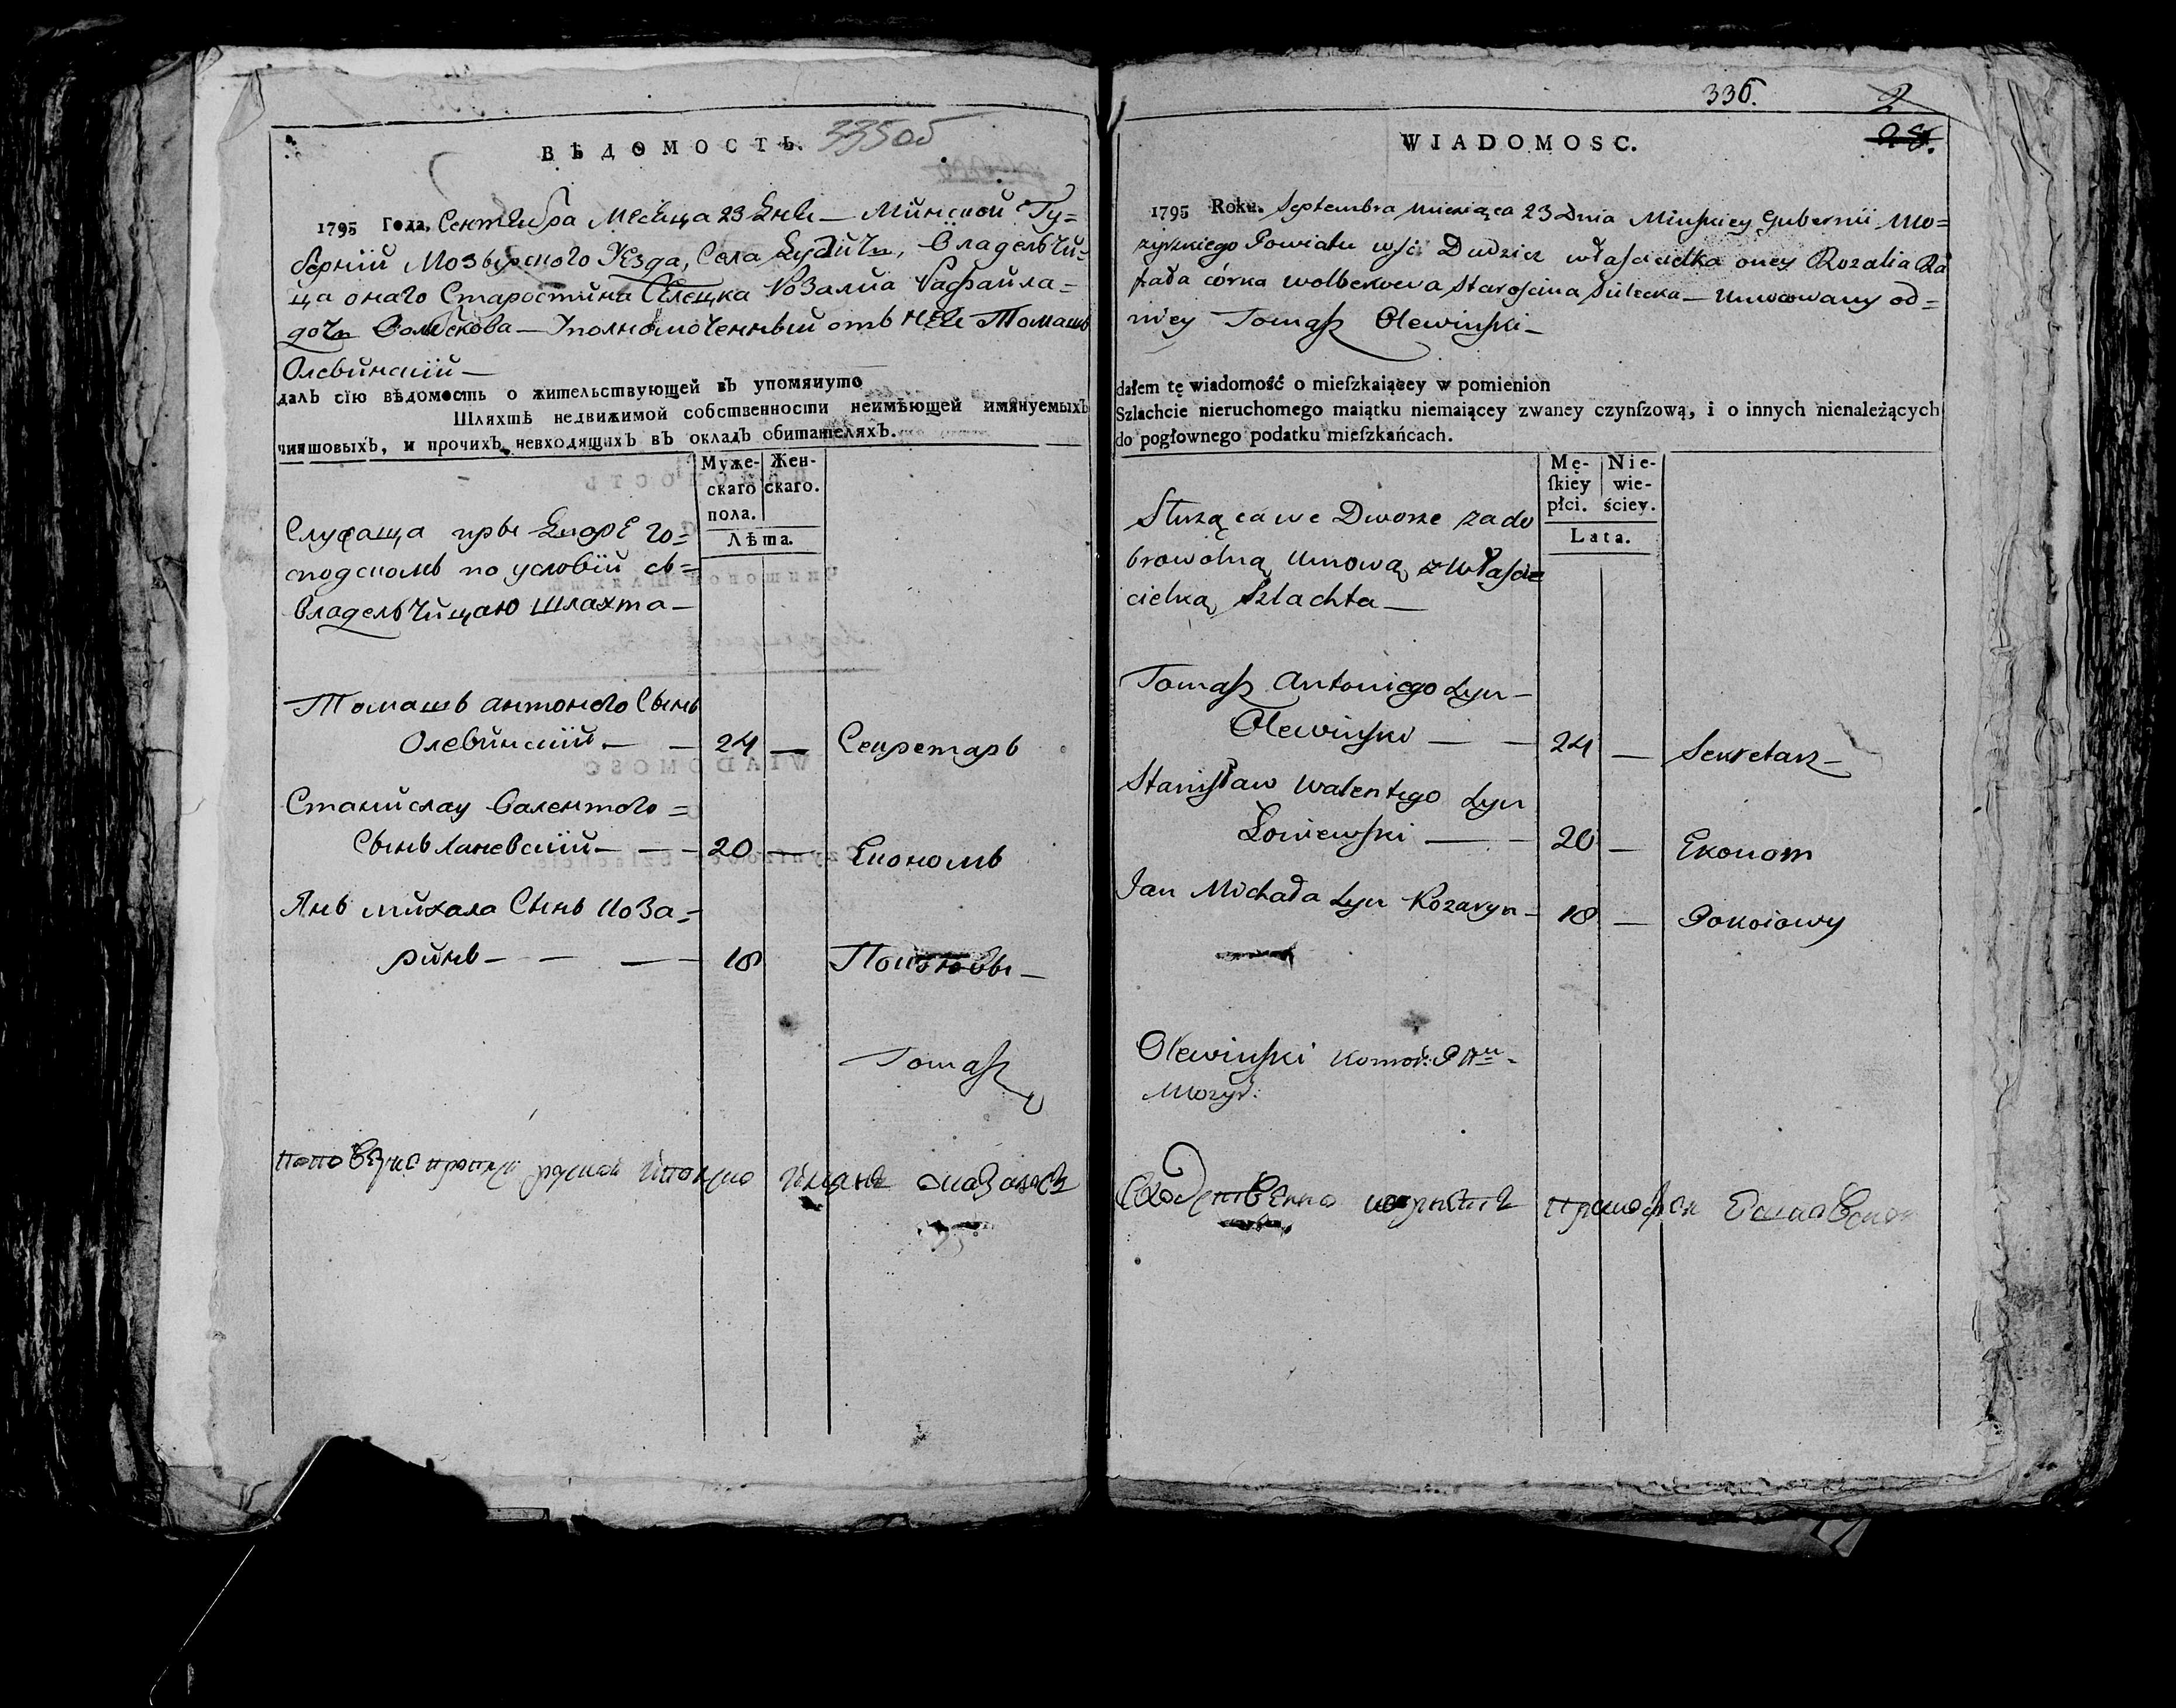 ВѢДОМОСТЬ. 335об
1795 Года, Сентября Месяца 23 Дня — Минской Гу=
берніи Мозырского Уезда, Села Дудичъ, Владельчи=
ца онаго Старостина Розалиа Рафайла=
дочь — Уполномоченный отъ нея Томашъ
Олевинскій —
далъ сїю вѣдомость о жительствующей въ упомянуто
Шляхтѣ недвижимой собственности неимѣющей имянуемыхъ
чиншовыхъ, и прочихъ невходящихъ въ окладъ обитателяхъ.
Муже- Жен-
скаго скаго.
пола.
Лѣта.
Служаща при Дворе го=
сподскомъ по условій съ=
Владельчицаю Шляхта —
Томашъ Антонего Сынъ
Олевинскій — — 24 — Секретарь
Станислау Валентого =
Сынъ Ланевскій — — 20 — Економъ
Янъ Михала Сынъ Коза=
ринъ — — — 18
Tomaſz
WIADOMOSC.
336. 2
28.
1795 Roku. Septembra Mieſiąca 23 Dnia Minſkiey Gubernii Mo=
zyrzkiego Powiatu wſi Dudzicz właſcicielka oney Rozalia Ra
fała córka Staroſcina — Umocowany od=
niey Tomaſz Olewinſki —
dałem tę wiadomość o mieſzkaiącey w pomienion
Szlachcie nieruchomego maiątku niemaiącey zwaney czynſzową, i o innych nienależących
do pogłownego podatku mieſzkańcach.
Mę- Nie-
ſkiey wie-
płci. ściey.
Lata.
Służąca we Dworze za do
browolną Umową z Właſci
cielką Szlachta —
Tomaſz Antoniego Syn —
Olewinſki — — 24 — Sekretarz —
Staniſław Walentego Syn
Łoniewſki — — 20 — Ekonom
Jan Michała Syn Kozaryn — 18 — Pokoiowy
Olewinſki
Mozyr: